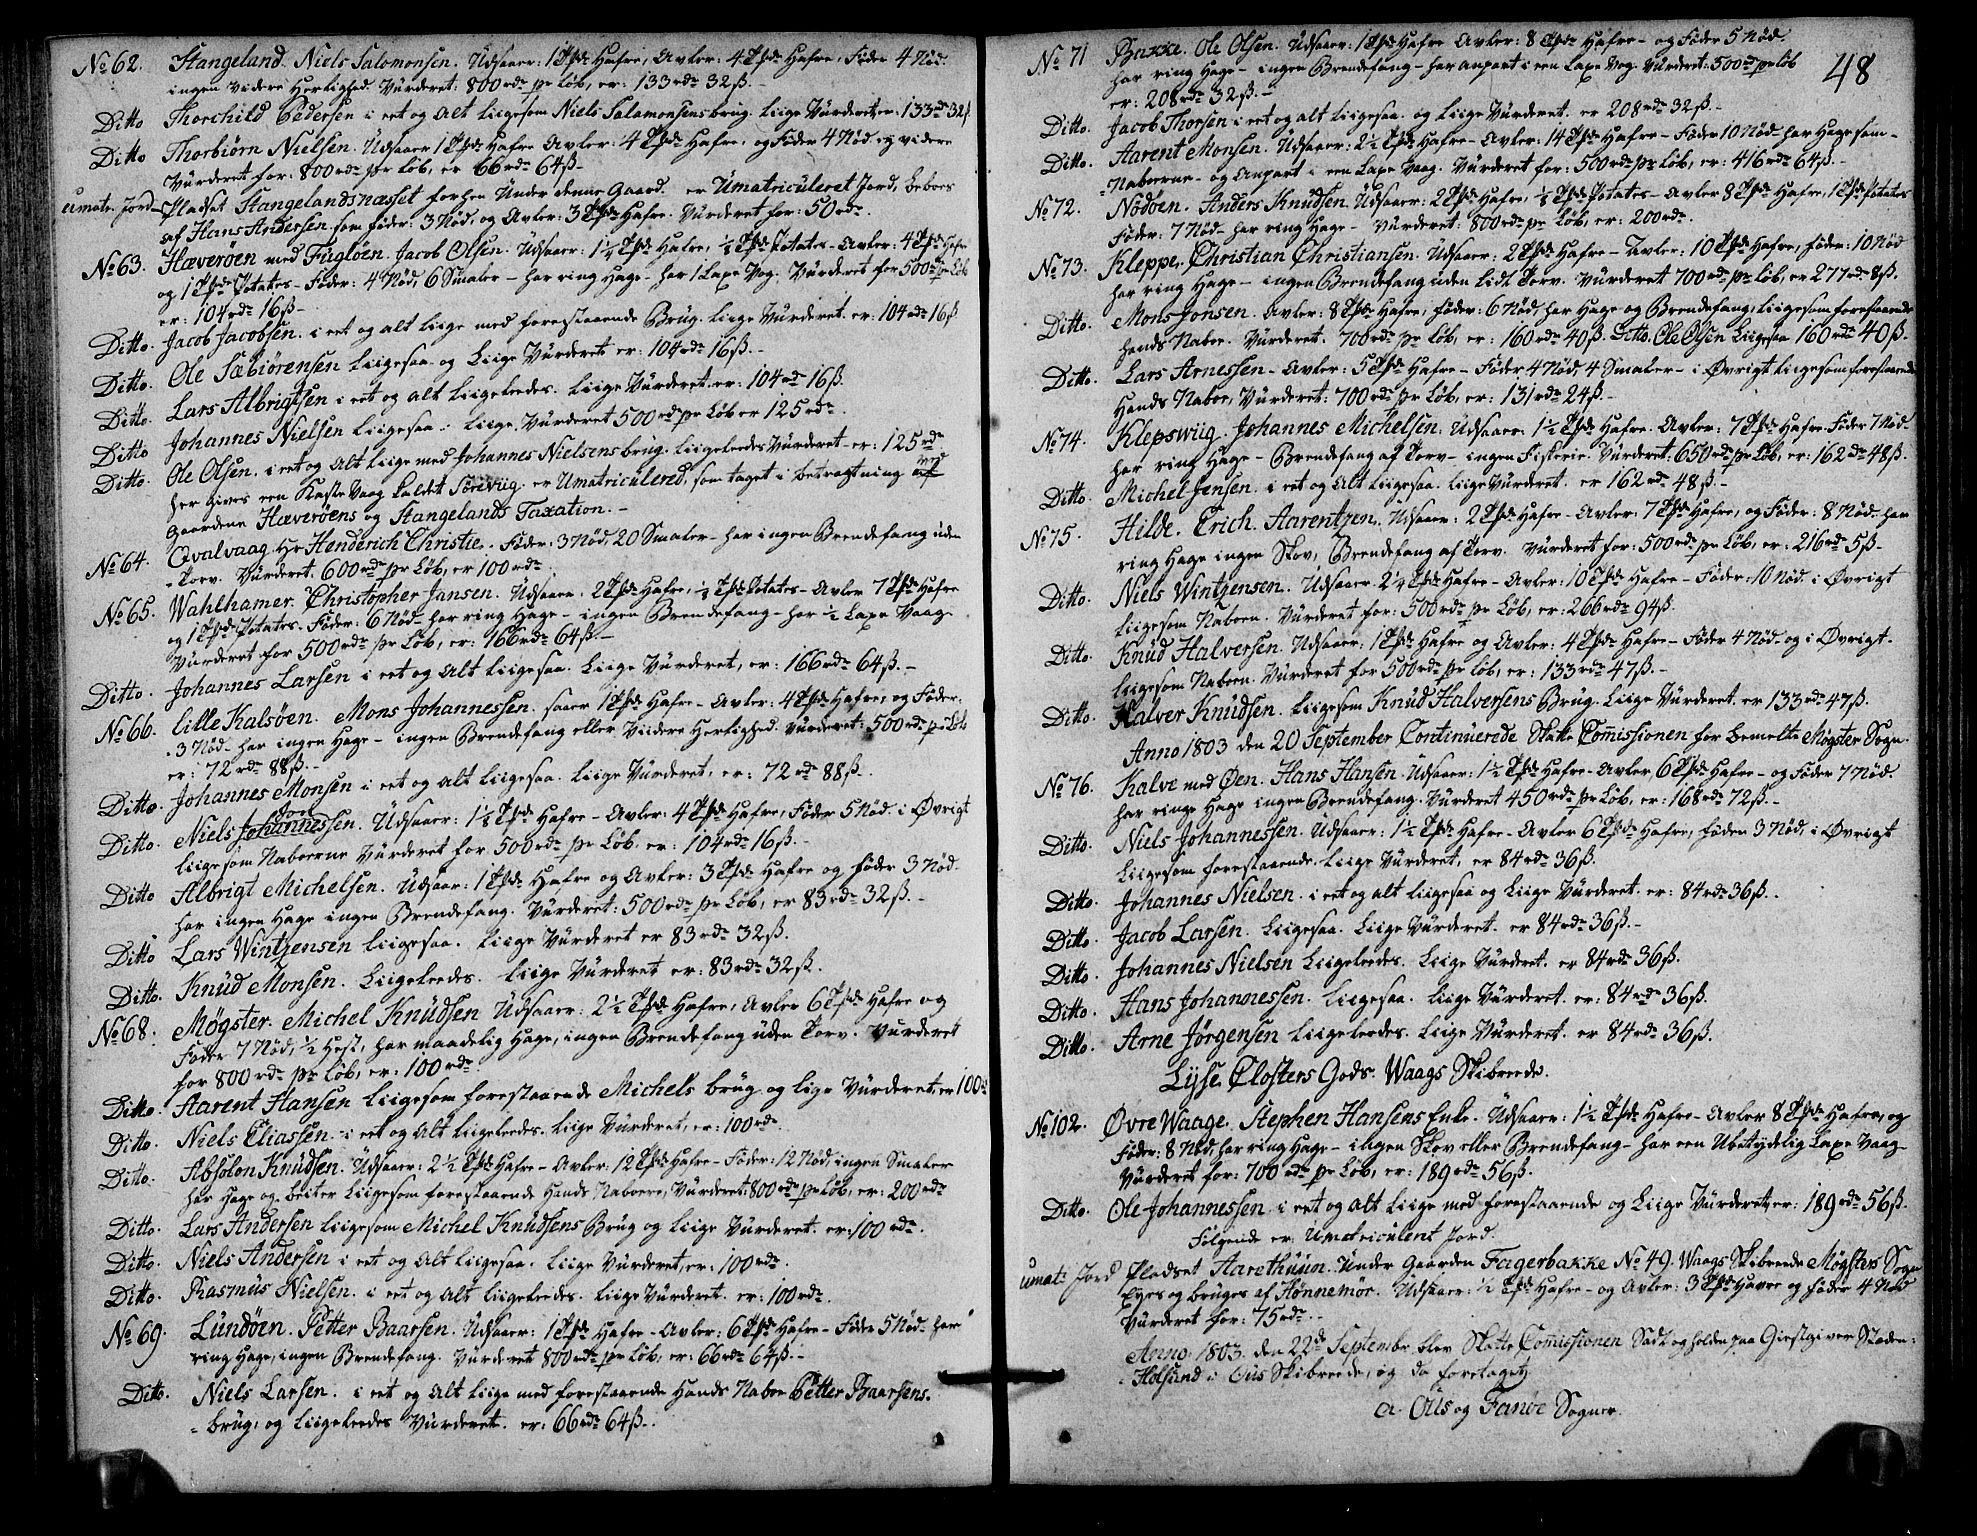 No 62. Stangeland. Niels Salomonsen. Udsaaer: 1 Tønde Hafre, Avler: 4 Tdr Hafre, Føder 4 Nød.
ingen videre Herlighed. Vurderet: 800 rdr pr Løb, er: 133 rdr 32 ß.
Ditto Thorchild Pedersen i eet og alt liigesom Niels Salamonsens brug. liige Vurderet er: 133 rdr 32 ß.
Ditto Thorbiørn Nielsen. Udsaaer 1 Tdr Hafre Avler: 4 Tdr Hafre, og Føder 4 Nød ey videre
Vurderet for: 800 rdr pr Løb, er 66 rdr 64 ß.
umatr. Jord Pladset Stangelandsnæsset forhen Under denne Gaard. er Umatriculeret Jord, beboes
af Hans Andersen som føder: 3 Nød, og Avler: 3 Tdr Hafre. Vurderet for: 50 rdr.
No 63. Hæverøen med Fugløen. Jacob Olsen. Udsaaer: 1 1/4 Tdr Hafre, 1/4 Tdr Potates - Avler: 4 Tdr Hafre
og 1 Tdr Potates - Føder: 4 Nød, 6 Smaler - har ring Hage - har 1 Laxe Vog. Vurderet for 500 rdr pr Løb
er: 104 rdr 16 ß.
Ditto. Jacob Jacobsen. i eet og alt liige med forestaaende Brug. liige Vurderet. er: 104 rdr 16 ß
Ditto. Ole Sæbiørensen liigesaa og Liige Vurderet er: 104 rdr 16 ß.
Ditto. Lars Albrigtsen i eet og alt liigeleedes. liige Vurderet. er: 104 rdr 16 ß.
Ditto Johannes Nielsen liigesaa. liige Vurderet 500 rdr pr Løb er 125 rdr.
Ditto. Ole Olsen. i eet og alt liige med Johannes Nielsens brug. liigeleedes Vurderet er: 125 rdr
her gives een Kaste Vaag kaldet er Umatriculered, som taget i betragtning ved
Gaardene Hæverøens og Stangelands Taxation.
No 64. Qvalvaag Hr Henderich Christie. Føder: 3 Nød, 20 Smaler - har ingen Brendefang uden
Torv. Vurderet. 600 rdr pr Løb, er 100 rdr.
No 65. Wahlhamer. Christopher Jansen. Udsaaer. 2 Tdr Hafre, Tdr Potates - Avler 7 Tdr Hafre
og 1 Tdr Potates. Føder: 6 Nød - har ring Hage - ingen Brendefang - har 1/2 Laxe Vaag.
Vurderet for 500 rdr pr Løb, er: 166 rdr 64 ß.
Ditto. Johannes Larsen i eet og alt Liigesaa. Liige Vurderet, er: 166 rdr 64 ß.
No 66. Lille Kalsøen. Mons Johannessen. saaer 1 Tdr Hafre - Avler: 4 Tdr Hafre, og Føder
3 Nød - har ingen Hage - ingen Brendefang eller Viidere Herlighed. Vurderet: 500 rdr pr Løb
er: 72 rdr 88 ß.
Ditto. Johannes Monsen i eet og alt liigesaa. liige Vurderet, er: 72 rdr 88 ß.
Ditto. Niels Johannessen. Udsaaer: 1 1/8 Tdr Hafre - Avler: 4 Tdr Hafre, Føder 5 Nød. i Øvrigt
liigesom Naboerne Vurderet for 500 rdr pr Løb. er: 104 rdr 16 ß.
Ditto Albrigt Michelsen. Udsaar: 1 Tdr Hafre og Avler: 3 Tdr Hafre og føder 3 Nød.
har ingen Hage ingen Brendefang. Vurderet: 500 rdr pr Løb, er 83 rdr 32 ß.
Ditto Lars Wintzensen liigesaa. liige Vurderet er 83 rdr 32 ß.
Ditto. Knud Monsen. Liigeleedes. liige Vurderet er: 83 rdr 32 ß.
No 68. Møgster. Michel Knudsen Udsaaer: 2 1/2 Tdr Hafre, Avler 6 Tdr Hafre og
Føder 7 Nød, 1/2 Hest, har maadelig Hage, ingen Brendefang uden Torv. Vurderet
for 800 rdr pr Løb, er: 100 rdr.
Ditto. Aarent Hansen liigesom forestaaende Michels brug og lige Vurderet, er 100 rdr
Ditto. Niels Eliassen i eet og alt liigeleedes. liige Vurderet, er: 100 rdr.
Ditto. Absolon Knudsen. Udsaaer: 2 1/2 Tdr Hafre - Avler: 12 Tdr Hafre - Føder: 12 Nød, ingen Smaler
har Hage og beiter liigesom forestaaende Hands Naboere, Vurderet: 800 rdr pr Løb, er: 200 rdr
Ditto. Lars Andersen liigesom Michel Knudsens Brug og liige Vurderet. er: 100 rdr.
Ditto. Niels Andersen i eet og alt liigesaa. liige Vurderet, er: 100 rdr.
Ditto. Rasmus Nielsen. i eet og alt liigeleedes. liige Vurderet. er: 100 rdr.
No 69. Lundøen. Petter Baarsen. Udsaaer: 1 Tdr Hafre - Avler: 6 Tdr Hafre - Føder 5 Nød - har
ring Hage, ingen Brendefang. Vurderet 800 rdr pr Løb, er: 66 rdr 64 ß.
Ditto. Niels Larsen. i eet og alt liige med forestaaende Hands Naboe Petter Baarsens.
brug, og liigeleedes Vurderet. er: 66 rdr 64 ß.
48
No 71 Bakke. Ole Olsen. Udsaaer: 1 Tdr Hafre Avler: 8 Tdr Hafre - og Føder 5 Nød.
har ring Hage - ingen Brendefang - har anpart i een Laxe Vog. Vurderet: 500 rdr pr Løb
er: 208 rdr 32 ß.
Ditto. Jacob Thorsen i eet og alt liigesaa. og liige Vurderet. er 208 rdr 32 ß.
Ditto. Aarent Monsen. Udsaaer: 2 1/2 Tdr Hafre - Avler: 14 Tdr Hafre - Føder 10 Nød - har Hage som
Naboerne - og Anpart i een Laxe Vaag. Vurderet for: 500 rdr pr Løb, er: 416 rdr 64 ß.
No 72. Nodøen. Anders Knudsen. Udsaaer: 2 Tdr Hafre, 1/8 Tdr Potates - Avler 8 Tdr Hafre, 1 Tdr Potates
Føder: 7 Nød - har ring Hage - Vurderet: 800 rdr pr Løb, er: 200 rdr.
No 73. Kleppe. Christian Christiansen. Udsaaer: 2 Tdr Hafre - Avler: 10 Tdr Hafre, føder: 10 Nød
har ring Hage - ingen Brendefang uden lidt Torv. Vurderet 700 rdr pr Løb, er 277 rdr 8 ß.
Ditto. Mons Jonsen. Avler: 8 Tdr Hafre, føder: 6 Nød, har Hage og Brendefang, liigesom forestaaende
Hands Naboe. Vurderet. 700 rdr pr Løb, er: 160 rdr 40 ß. Ditto. Ole Olsen Liigesaa 160 rdr 40 ß.
Ditto. Lars Arnessen - Avler: 5 Tdr Hafre - Føder 4 Nød, 4 Smaler - i Øvrigt liigesom forestaaende
Hands Naboe, Vurderet: 700 rdr pr Løb, er: 131 rdr 24 ß.
No 74. Klepswiig. Johannes Michelsen. Udsaaer: 1 1/2 Tdr Hafre - Avler: 7 Tdr Hafre Føder 7 Nød
har ring Hage - Brendefang af Torv - ingen Fiskerie. Vurderet: 650 rdr pr Løb, er: 162 rdr 48 ß.
Ditto Michel Jensen. i eet og alt liigesaa. liige Vurderet. er 162 rdr 48 ß.
No 75. Hilde. Erich Aarentzen. Udsaaer: 2 Tdr Hafre - Avler: 7 Tdr Hafre, og Føder: 8 Nød - har
ring Hage ingen Skov, Brendefang af Torv. Vurderet for: 500 rdr pr Løb, er: 216 rdr 5 ß.
Ditto. Niels Wintzensen. Udsaaer. 2 1/4 Tdr Hafre - Avler: 10 Tdr Hafre - Føder: 10 Nød. i Øvrigt
liigesom Naboen. Vurderet for: 500 rdr pr Løb, er: 266 rdr 94 ß.
Ditto. Knud Halversen. Udsaaer: 1 Tdr Hafre og Avler: 4 Tdr Hafre - Føder 4 Nød - og i Øvrigt
liigesom Naboen. Vurderet for 500 rdr pr Løb, er: 133 rdr 47 ß.
Ditto. Halver Knudsen. liigesom Knud Halversens Brug. liige Vurderet. er 133 rdr 47 ß.
Anno 1803 den 20 September Continuerede Skatte Commissionen for bemelte Møgster Sogn.
No 76. Kalve med Øen. Hans Hansen. Udsaaer: 1 1/2 Tdr Hafre - Avler 6 Tdr Hafre - og Føder 7 Nød.
har ringe Hage ingen Brendefang. Vurderet 450 rdr pr Løb, er: 168 rdr 72 ß.
Ditto. Niels Johannessen. Udsaaer: 1 1/2 Tdr Hafre - Avler 6 Tdr Hafre, føder 3 Nød, i Øvrigt
Liigesom forestaaende. liige Vurderet, er 84 rdr 36 ß.
Ditto. Johannes Nielsen. i eet og alt liigesaa og Liige Vurderet. er: 84 rdr 36 ß.
Ditto. Jacob Larsen. Liigesaa. Liige Vurderet. er 84 rdr 36 ß.
Ditto. Johannes Nielsen Liigeleedes. Liige Vurderet. er 84 rdr 36 ß.
Ditto. Hans Johannessen. liigesaa. liige Vurderet. er: 84 rdr 36 ß.
Ditto. Arne Jørgensen liigeleedes. liige Vurderet. er 84 rdr 36 ß.
Lyse Closters Gods. Waags Skibreede.
No 102. Øvre Waage. Stephen Hansens Enke. Udsaaer: 1 1/2 Tdr Hafre - Avler 8 Tdr Hafre, og
Føder: 8 Nød, har ring Hage - ingen Skov eller Brendefang - har een Ubetydelig Laxe Vaag
Vurderet for: 700 rdr pr Løb, er: 189 rdr 56 ß.
Ditto. Ole Johannessen i eet og alt liige med forestaaende og Liige Vurderet, er: 189 rdr 56 ß.
Følgende er Umatriculeret Jord.
umatr: Jord Pladset Aarethuun. Under Gaarden Fagerbakke No 49. Waags Skibreede Møgsters Sogn
Eyes og bruges af Hønnemor. Udsaaer: 1/2 Tdr Hafre - og Avler: 3 Tdr Havre og føder 4 Nød
Vurderet for: 75 rdr.
Anno 1803. den 22de September, blev Skatte Commissionen Sadt og holden paa Giestgiver Stæden
Holsund i Ous Skibreede, og da foretaget
a. Ous og Fanøe Sogner.